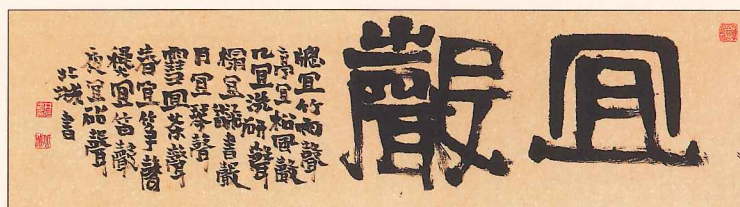 宜聲
牕宜竹雨聲
亭宜松風聲
几宜洗研聲
榻宜翻書聲
月宜琴聲
雪宜茶聲
春宜箏聲
秋宜笛聲
夜宜砧聲
書